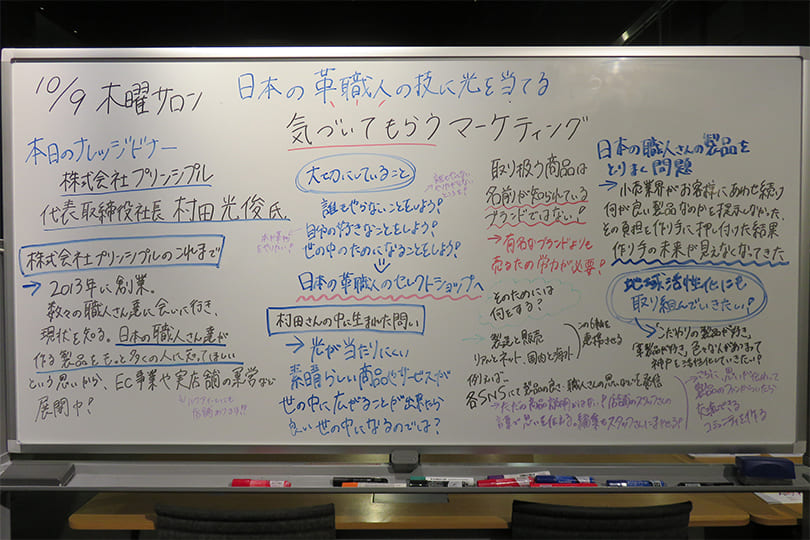 10/9 木曜サロン
日本の革職人の技に光を当てる
気づいてもらうマーケティング
本日のナレッジドナー
株式会社プリンシプル
代表取締役社長 村田光俊氏
株式会社プリンシプルのこれまで
→ 2013年に創業。
数々の職人さん達に会いに行き、
現状を知る。日本の職人さん達が
作る製品をもっと多くの人に知ってほしい
という思いから、EC事業や実店舗の運営など
展開中!
大切にしていること
誰もやらないことをしよう!
自分の好きなことをしよう!
世の中のためになることをしよう!
日本の革職人のセレクトショップへ
村田さんの中に生まれた問い
→ 光が当たりにくい
素晴らしい商品やサービスが
世の中に広がることが出来たら
良い世の中になるのでは?
取り扱う商品は
名前が知られている
ブランドではない!
→ 有名なブランドよりも
売るための労力が必要!
そのためには
何をする?
製造と販売
リアルとネット、国内と海外
この6軸を
連携させる
例えば…
各SNSにて製品の良さ・職人さんの思いなどを発信
→ ただの商品説明ではない!店舗のスタッフさんの
言葉で思いを伝える。編集もスタッフさんにまかせる!
日本の職人さんの製品を
とりまく問題
→ 小売業界がお客様にあわせ続け
何が良い製品なのかを提示しなかった。
その負担を作り手に押し付けた結果
作り手の未来が見えなくなってきた
地域活性化にも
取り組んでいきたい!
「こだわりの製品が好き」
「革製品が好き」色々な人があつまって
神戸を活性化していきたい!
→ さらに、思いが伝わって
製品のファンからいたら
交流できる
コミュニティを作る